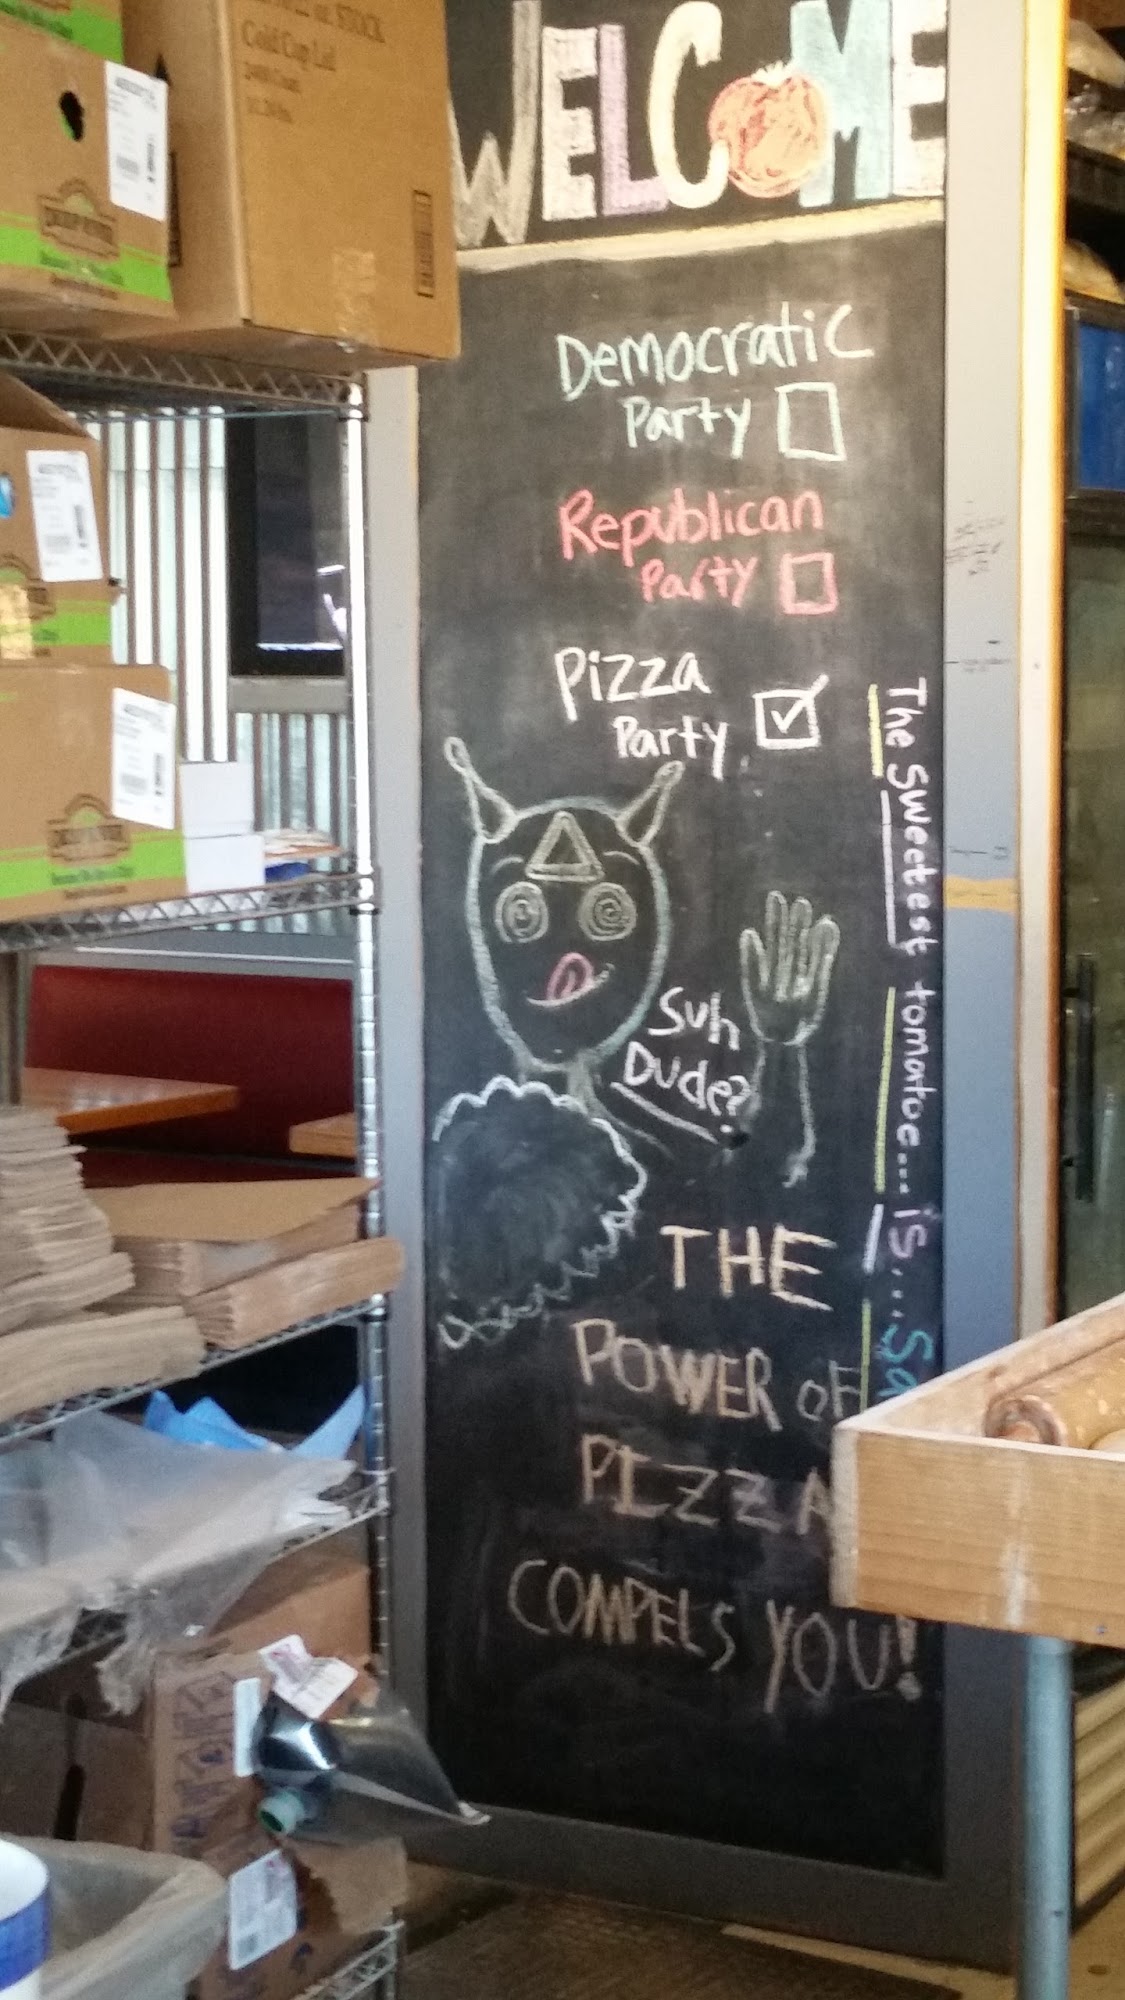 WELCOME
Democratic
Party
Republican
Party
Pizza
Party
Suh
Dude?
The Sweetest tomatoe... is....
THE
POWER OF
PIZZA
COMPELS YOU!
Cold Cup Lid